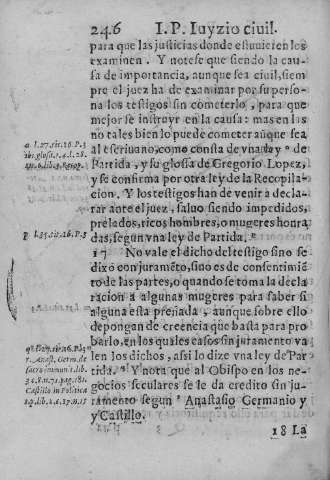 246 I.P. Iuyzio ciuil.
para que las justicias donde estuuieren los
examinen. Y notese que siendo la cau-
sa de importancia, aunque sea ciuil, siem
pre el juez ha de examinar por su perso-
na los testigos sin cometerlo, para que
mejor se instruya en la causa: mas en las
no tales bien lo puede cometer aũque sea
al escriuano, como consta de vna ley de
Partida, y su glossa de Gregorio Lopez,
y se confirma por otra ley de la Recopila-
cion. Y los testigos han de venir a decla-
rar ante el juez, saluo siendo impedidos,
prelados, ricos hombres, o mugeres honra
das, segun vna ley de Partida.
17 No vale el dicho del testigo sino se
dixo con juramẽto, sino es de consentimiẽ
to de las partes, o quando se toma la decla
racion a algunas mugeres para saber si
alguna esta preñada, aunque sobre ello
depongan de creencia que basta para pro
barlo, en los quales casos sin juramento va
len los dichos, assi lo dize vna ley de Par
tida. Y nota que al Obispo en los ne-
gocios seculares se le da credito sin ju-
ramento segun Anastasio Germanio y
y Castillo.
18 La
o l.27.tit.16.P.3
p l.35.tit.16.P.3
r. Anast. Germ. de
sacro immun. lib.
Castillo in Politica